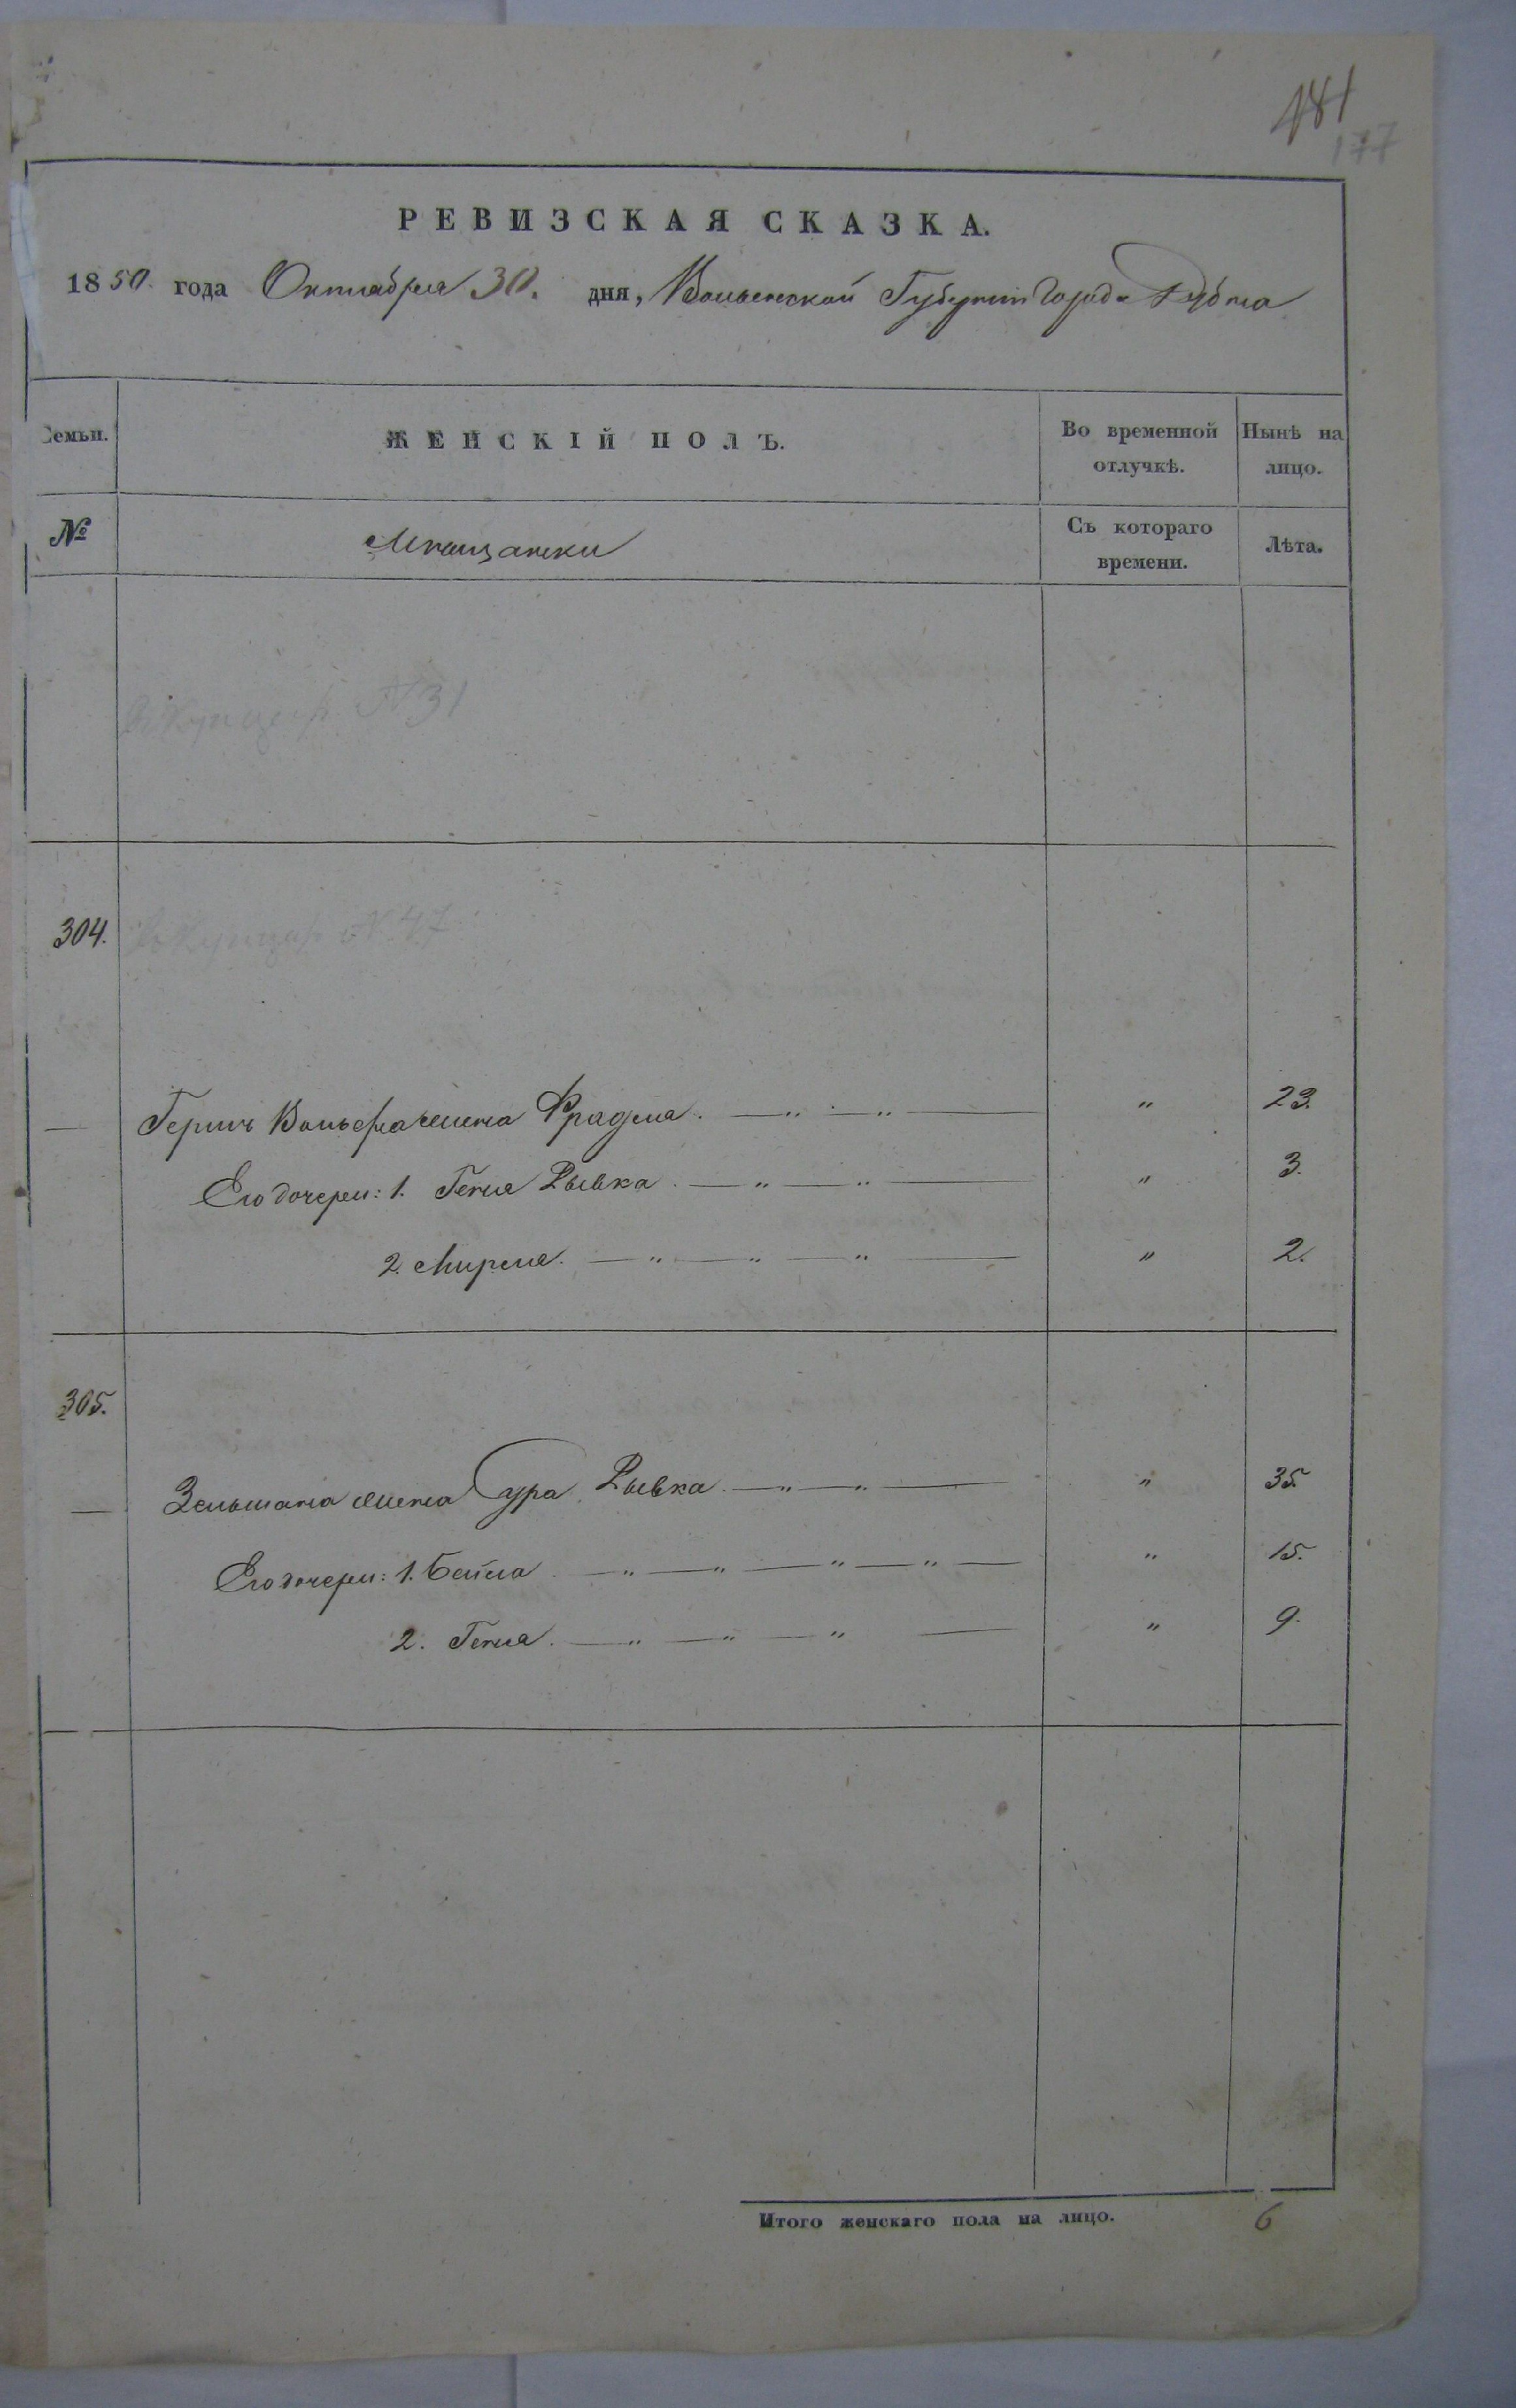 181
177
РЕВИЗСКАЯ СКАЗКА.
1850. года Октября 30. дня, Волынской Губернии Города Дубна
Семьи. ЖЕНСКІЙ ПОЛЪ. Во временной отлучкѣ. Нынѣ на лицо.
№ Мѣщанки Съ котораго времени. Лѣта.
Купцар № 31
304. Купцар № 47
— Герша Вольфа жена Фрадма. " 23.
Его дочери: 1. Геня Рывка. " 3.
2. Мирля. " 2.
305.
— Зельмана жена Сура Рывка " 35.
Его дочери: 1. Бейла " 15.
2. Геня. " 9.
Итого женскаго пола на лицо. 6